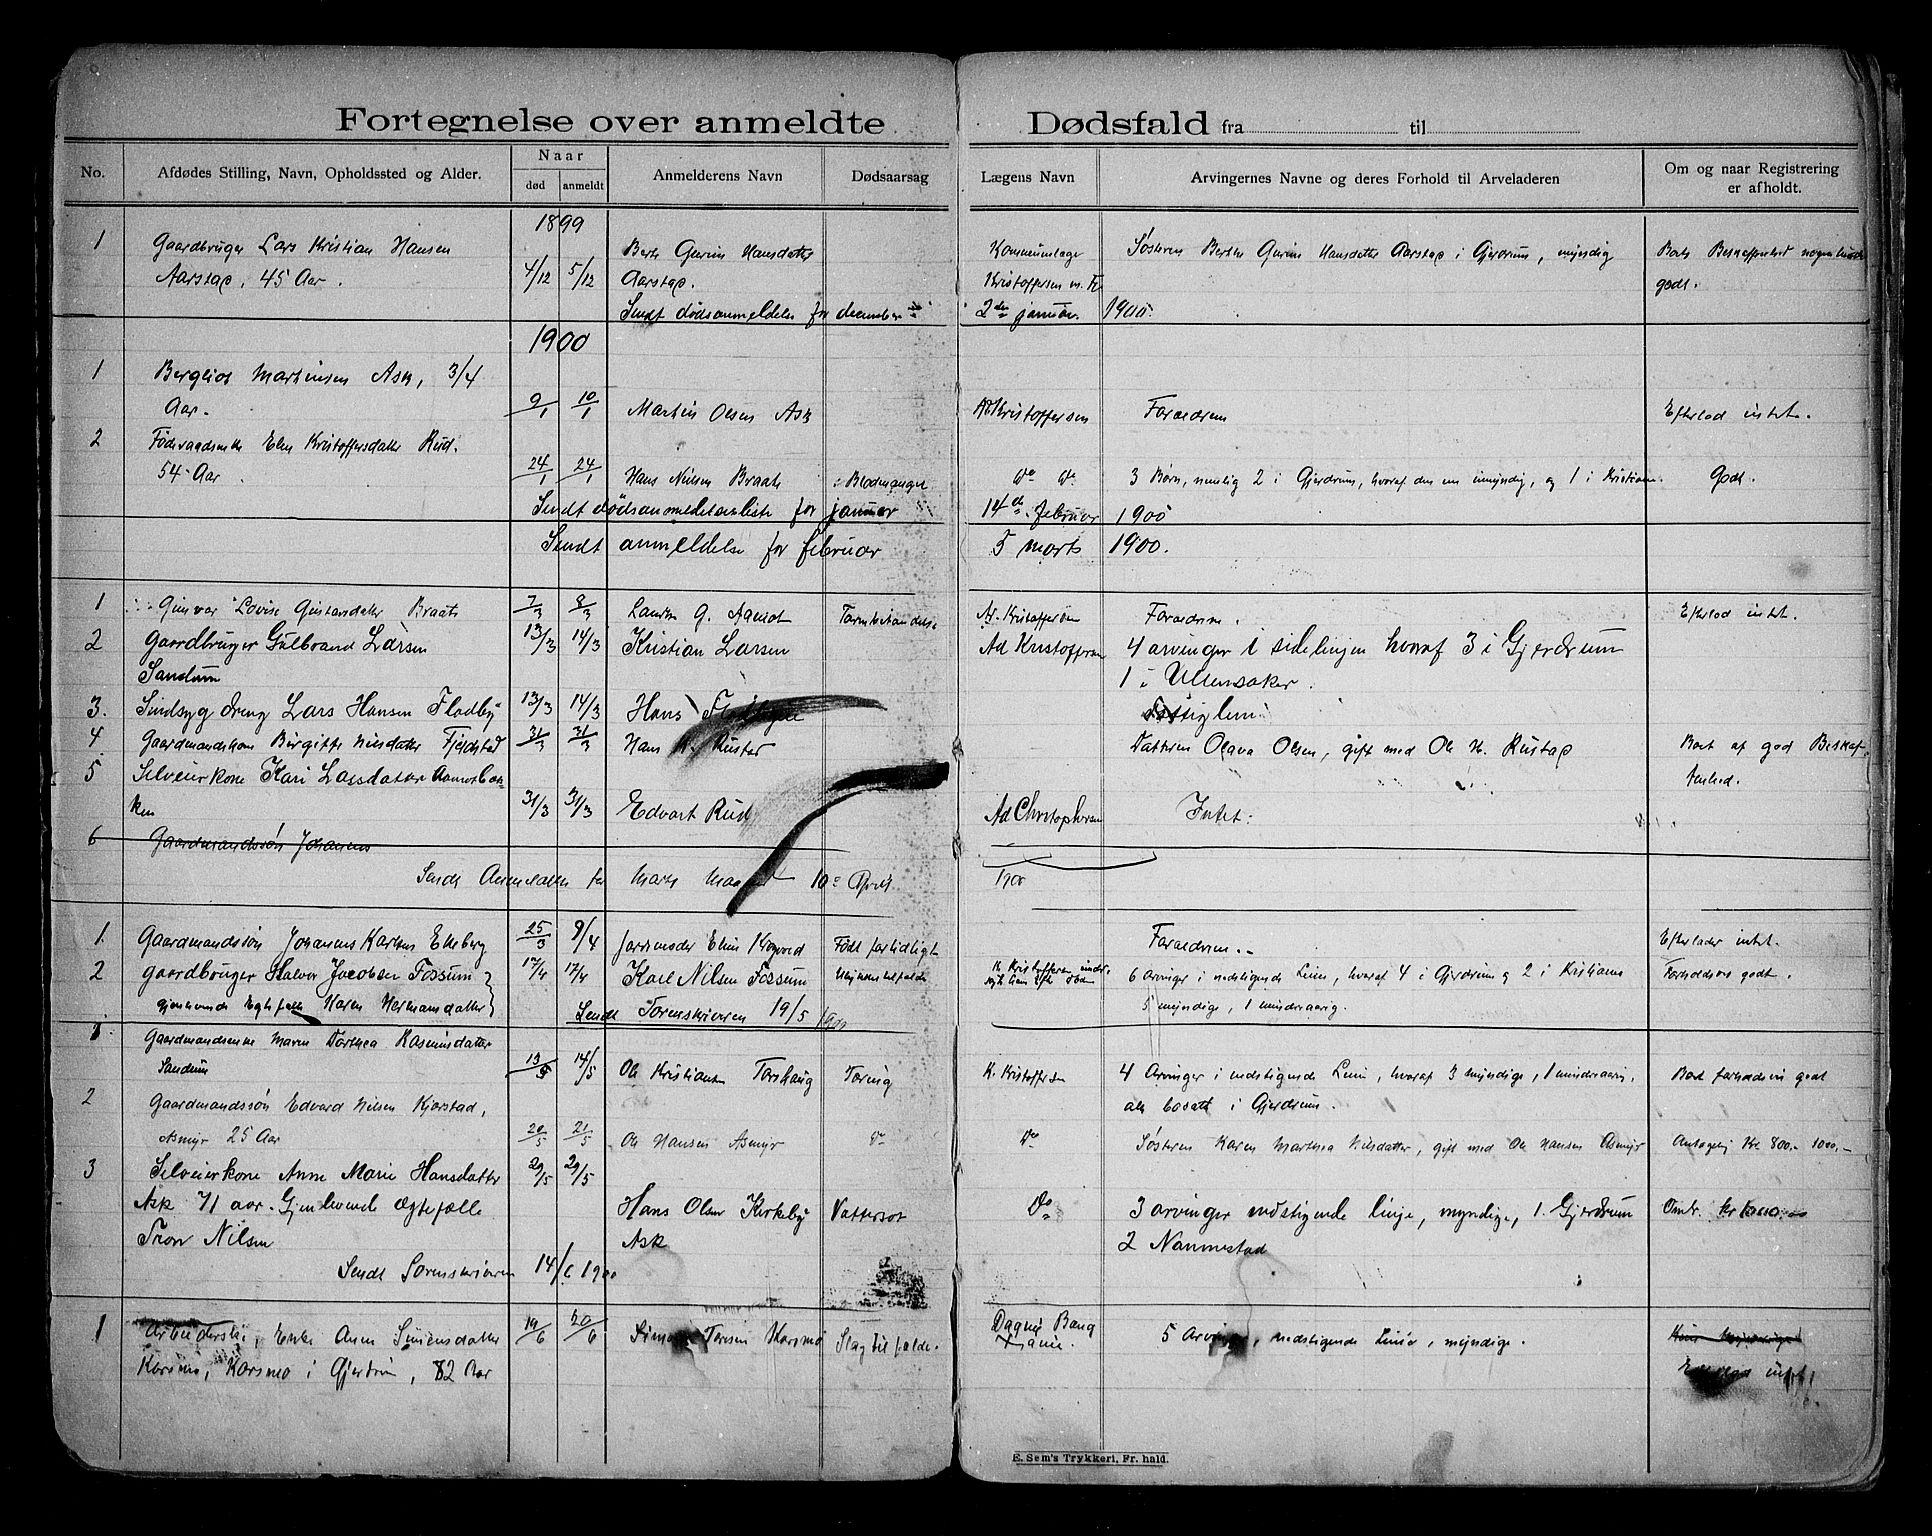 Fortegnelse over anmeldte Dødsfald fra til
No. Afdødes Stilling, Navn, Opholdssted og Alder. Naar død anmeldt Anmelderens Navn Dødsaarsag Lægens Navn Arvingernes Navne og deres Forhold til Arveladeren Om og naar Registrering er afholdt.
1899
1 Gaardbruger Lars Kristian Hansen Berthe Gurine Hansdatter Kommunelæge Søsteren Berthe Gurine Hansdatter Aarstad i Gjerdrum, myndig Boets Beskaffenhed nogenlunde
Aarstad, 45 Aar. 4/12 5/12 Aarstad. Kristoffersen godt.
Sendt dødsanmeldelse for december 2den januar. 1900.
1900
1 Bergliot Martinsen Ask, 3/4
Aar. 9/1 10/1 Martin Olsen Ask Ad Kristoffersen Forældrene Efterlod intet.
2 Elen Kristoffersdatter Rud.
54 Aar 24/1 24/1 Hans Nilsen Braate Blodmangel Do Do 3 Børn, nemlig 2 i Gjerdrum, hvoraf den ene umyndig, og 1 i Kristiania. Godt.
Sendt dødsanmeldelsesliste for januar 14de februar 1900
Sendt anmeldelse for februar 5 marts 1900.
1 Gunvor Lovise Gustavsdatter Braate 7/3 8/3 Lauritz G. Aamot Tarmbetændelse Ad. Kristoffersen Forældrene. Efterlod intet.
2 Gaardbruger Gulbrand Larsen 13/3 14/3 Kristian Larsen Ad Kristoffersen 4 arvinger i sidelinjen hvoraf 3 i Gjerdrum
Sandum 1 i Ullensaker.
3. Sindsyg dreng Lars Hansen Flodby 13/3 14/3 Hans
4 Gaardmandskone Birgitte Nilsdatter Fjeldstad 31/3 31/3 Hans H. Rustad Datteren Olava Olsen, gift med Ole H. Rustad Boet af god Beskaf-
5 Selveierkone Kari Larsdatter Aamotbak- fenhed.
ken 31/3 31/3 Edvart Rud Ad Christophersen Intet.
6 Gaardmandssøn Johannes
Sendt Anmeldelse for Marts Maaned 10de April 1900
1. Gaardmandssøn Johannes Karlsen Ekeberg 25/3 9/4 Jordemoder Elise Krogved Født fortidligt Forældrene. Efterlader intet.
2 Gaardbruger Halvor Jacobsen Fossum 17/4 17/4 Karl Nilsen Fossum Ulykkestilfælde K. Kristoffersen 6 Arvinger i nedstigende Linie, hvoraf 4 i Gjerdrum og 2 i Kristiania Forholdsvis godt.
gjenlevende Egtefælle Karen Hermansdatter 5 myndige, 1 mindreaarig.
Sendt Sorenskriveren 19/5 1900
1. Gaardmandsenke Maren Dorthea Rasmusdatter
Sandum 13/5 14/5 Ole Kristiansen Torshaug Tæring K. Kristoffersen 4 Arvinger i nedstigende Linie, hvoraf 3 myndige, 1 mindreaarig, Boet forholdsvis godt
2 Gaardmandssøn Edvard Nilsen Kjorstad, alle bosatt i Gjerdrum.
Asmyr 25 Aar 20/5 21/5 Ole Hansen Asmyr Do Do Søsteren Karen Marthea Nilsdatter, gift med Ole Hansen Asmyr Antagelig Kr 800.- 1000,-
3 Selveierkone Anne Marie Hansdatter 29/5 29/5
Ask 71 aar. Gjenlevende ægtefælle Hans Olsen Kirkeby Vattersot Do 3 arvinger nedstigende linje, myndige, 1. Gjerdrum Omtr. kr 1000.-
Tron Nilsen Ask 2 Nannestad
Sendt Sorenskriveren 14/6 1900
1 Enke Anne Simensdatter 19/6 20/6 Simon Toresen Korsmo Slagtilfælde. Dagny Bang 5 Arvinger, nedstigende Linie, myndige.
Korsmo, Korsmo i Gjerdrum, 82 Aar Efterlod intet
E. Sem's Trykkeri, Fr. hald.